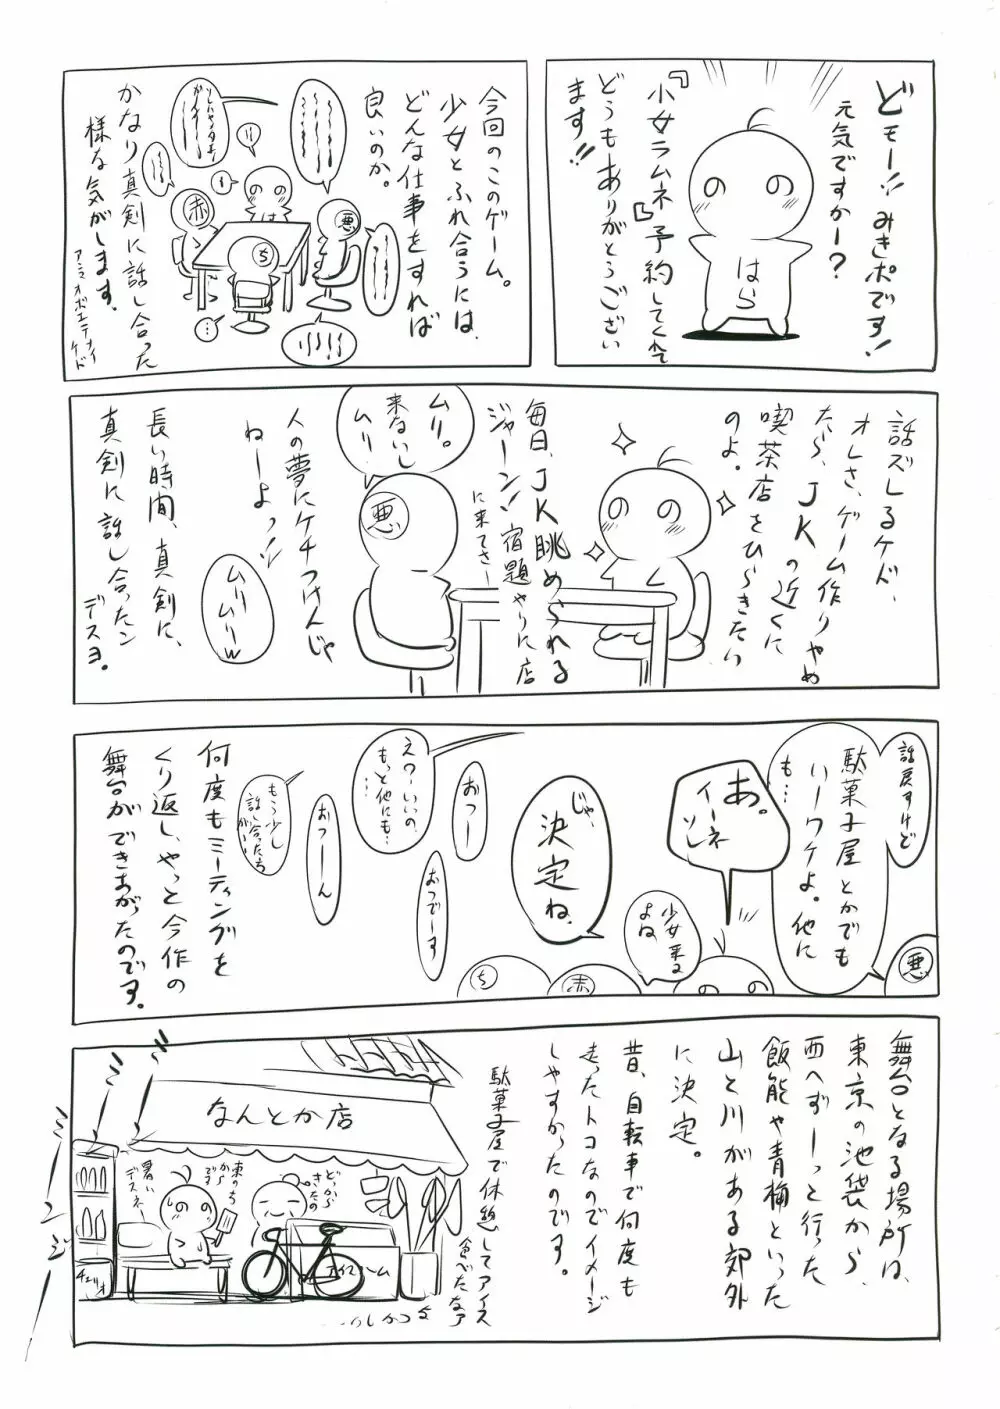 どモー!!みきポです!
元気ですかー?
『少女ラムネ』予約してくれて
どうもありがとうござい
ます!!
はら
今回のこのゲーム。
少女とふれ合うには、
どんな仕事をすれば
良いのか。
悪
赤
ち
は
かなり真剣に話し合った
様な気がします。
アンマオボエテナイ
ケド
話ズレるケド、
オレさ、ゲーム作りやめ
たら、JKの近くに
喫茶店をひらきたい
のよ。
毎日、JK眺められる
ジャーン!宿題やりに店
に来てさー
ムリ。
来ないし
ムリ
悪
人の夢にケチつけんじゃ
ねーよッ!!
ムリー
ムリーw
長い時間、真剣に、
真剣に話し合ったン
デスヨ。
話戻すけど
駄菓子屋とかでも
いーワケよ。他に
も…
悪
あ。
イーネ
ソレ
少女来る
よね
じゃ、
決定ね、
赤
ち
おつー
えっ?いいの、
もっと他にも…
おつでーす
おつーん
もう少し
話し合ったち
がいー
何度もミーティングを
くり返し、やっと今作の
舞台ができあがったのです。
舞台となる場所は、
東京の池袋から、
西へずーっと行った
飯能や青梅といった
山と川がある郊外
に決定。
昔、自転車で何度も
走ったトコなのでイメージ
しやすかったのです。
駄菓子屋で休憩してアイス
食べたなァ
なつかしい…
なんとか店
どっから
きたの
東のち
から
です
暑い
デスネ
アイスクリーム
チェリオ
ミーンミンジー